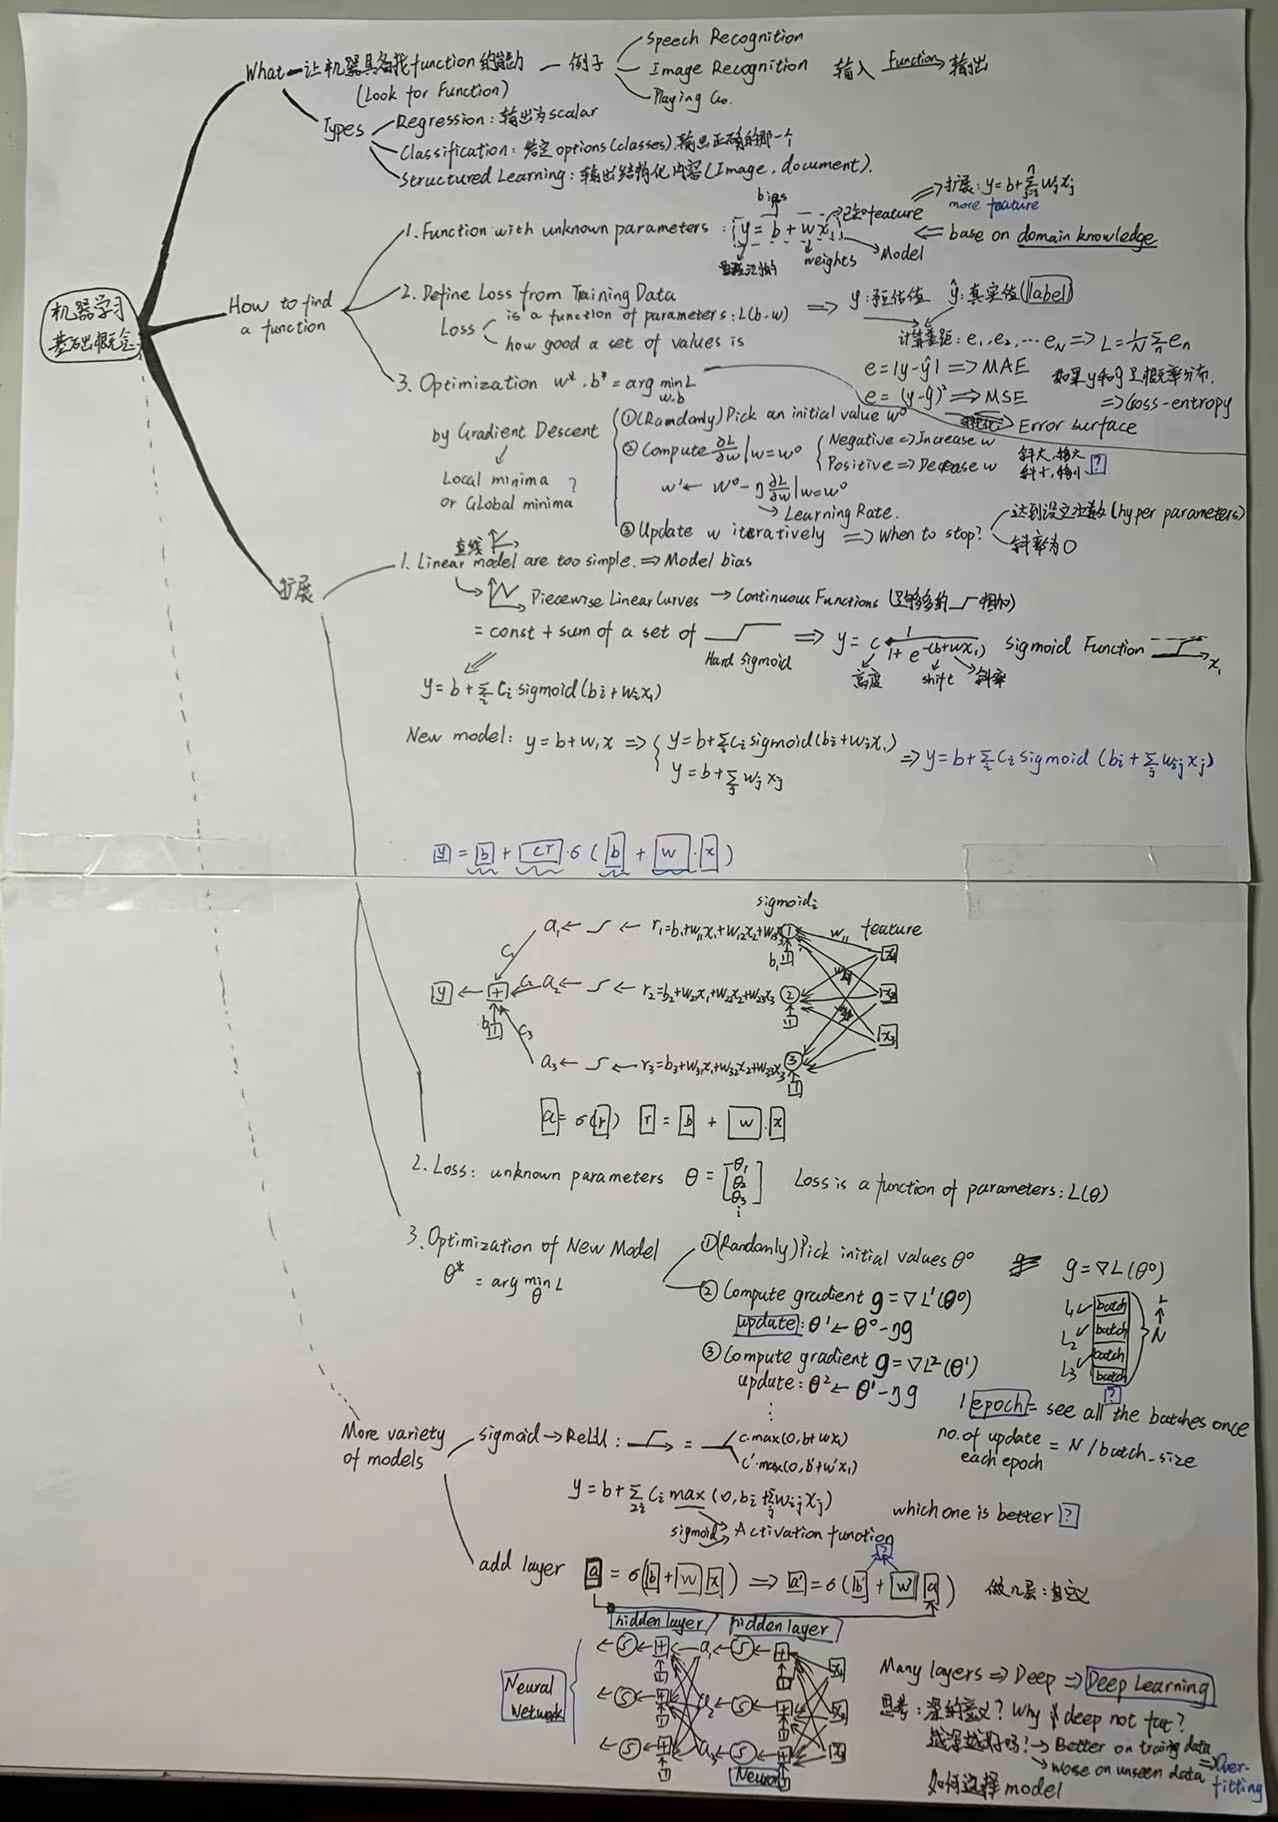 机器学习
基础概念
What — 让机器具备找function的能力 — 例子
(Look for Function)
Speech Recognition
Image Recognition
Playing Go.
输入 Function→ 输出
Types
Regression: 输出为scalar
Classification: 给定options(classes),输出正确的那一个
Structured Learning: 输出结构化内容(Image, document).
How to find
a function
1. Function with unknown parameters :
bias
y = b + w x₁
已知feature
weights
Model
⇒ 扩展: y=b+Σwⱼxⱼ
more feature
⇐ base on domain knowledge
2. Define Loss from Training Data
Loss
is a function of parameters: L(b.w)
how good a set of values is
⇒ y: 预估值 ŷ: 真实值(label)
计算差距: e₁, e₂, ... e_N ⇒ L = 1/N Σ eₙ
e = |y-ŷ| ⇒ MAE
e = (y-ŷ)² ⇒ MSE
如果y和ŷ是概率分布.
⇒ Coss-entropy
Error surface
3. Optimization w*.b* = arg min L
w.b
by Gradient Descent
Local minima
or Global minima ?
①(Ramdomly) Pick an initial value w⁰
②Compute ∂L/∂w | w=w⁰
Negative ⇒ Increase w
Positive ⇒ Decrease w
斜大, 移大
斜小, 移小 ?
w' ← w⁰ - η ∂L/∂w | w=w⁰
→ Learning Rate.
③Update w iteratively ⇒ When to stop?
达到设定次数(hyper parameters)
斜率为0
扩展
直线
1. Linear model are too simple. ⇒ Model bias
Piecewise Linear Curves → Continuous Functions (足够多的 相加)
= const + sum of a set of
Hard sigmoid
⇒ y = c 1/(1+e^-(b+wx₁)) Sigmoid Function
x₁
高度 shift 斜率
y = b + Σ cᵢ sigmoid(bᵢ + wᵢx₁)
New model: y = b + w₁x ⇒
y = b + Σcᵢ sigmoid(bᵢ + wᵢx₁)
y = b + Σ wⱼ xⱼ
⇒ y = b + Σ cᵢ sigmoid (bᵢ + Σ wᵢⱼ xⱼ)
y = b + cT · σ ( b + w · x )
sigmoidᵢ
feature
a₁ ← ← r₁=b₁+w₁₁x₁+w₁₂x₂+w₁₃x₃ 1 w₁₁ x₁
c₁
b₁ 1
y ← + c₂ a₂ ← ← r₂=b₂+w₂₁x₁+w₂₂x₂+w₂₃x₃ 2 x₂
b 1 c₃
1
a₃ ← ← r₃=b₃+w₃₁x₁+w₃₂x₂+w₃₃x₃ 3 x₃
1
a = σ(r) r = b + w · x
2. Loss: unknown parameters θ = [θ₁ θ₂ θ₃ ⋮] Loss is a function of parameters: L(θ)
3. Optimization of New Model
θ* = arg min L
θ
①(Randomly) Pick initial values θ⁰
g = ∇L(θ⁰)
②Compute gradient g = ∇L¹(θ⁰)
update: θ¹ ← θ⁰ - ηg
③Compute gradient g = ∇L²(θ¹)
update: θ² ← θ¹ - ηg
⋮
L₁ batch
L₂ batch
L₃ batch
batch
L
N
?
1 epoch = see all the batches once
no. of update
each epoch = N / batch_size
More variety
of models
sigmoid → ReLU :
=
c·max(0, b+wx₁)
c'·max(0, b'+w'x₁)
y = b + Σ cᵢ max (0, bᵢ + Σ wᵢⱼ xⱼ)
2i
sigmoid Activation function
which one is better ?
add layer a = σ(b + w x) ⇒ a' = σ(b' + w' a)
?
做几层: 自定义
hidden layer hidden layer
Neural
Network
a₁
a₂
a₃
x₁
x₂
x₃
Neuron
Many layers ⇒ Deep ⇒ Deep Learning
思考: 深的意义? Why deep not fat?
越深越好吗? → Better on traing data
→ wose on unseen data ⇒ Over-
fitting
如何选择model